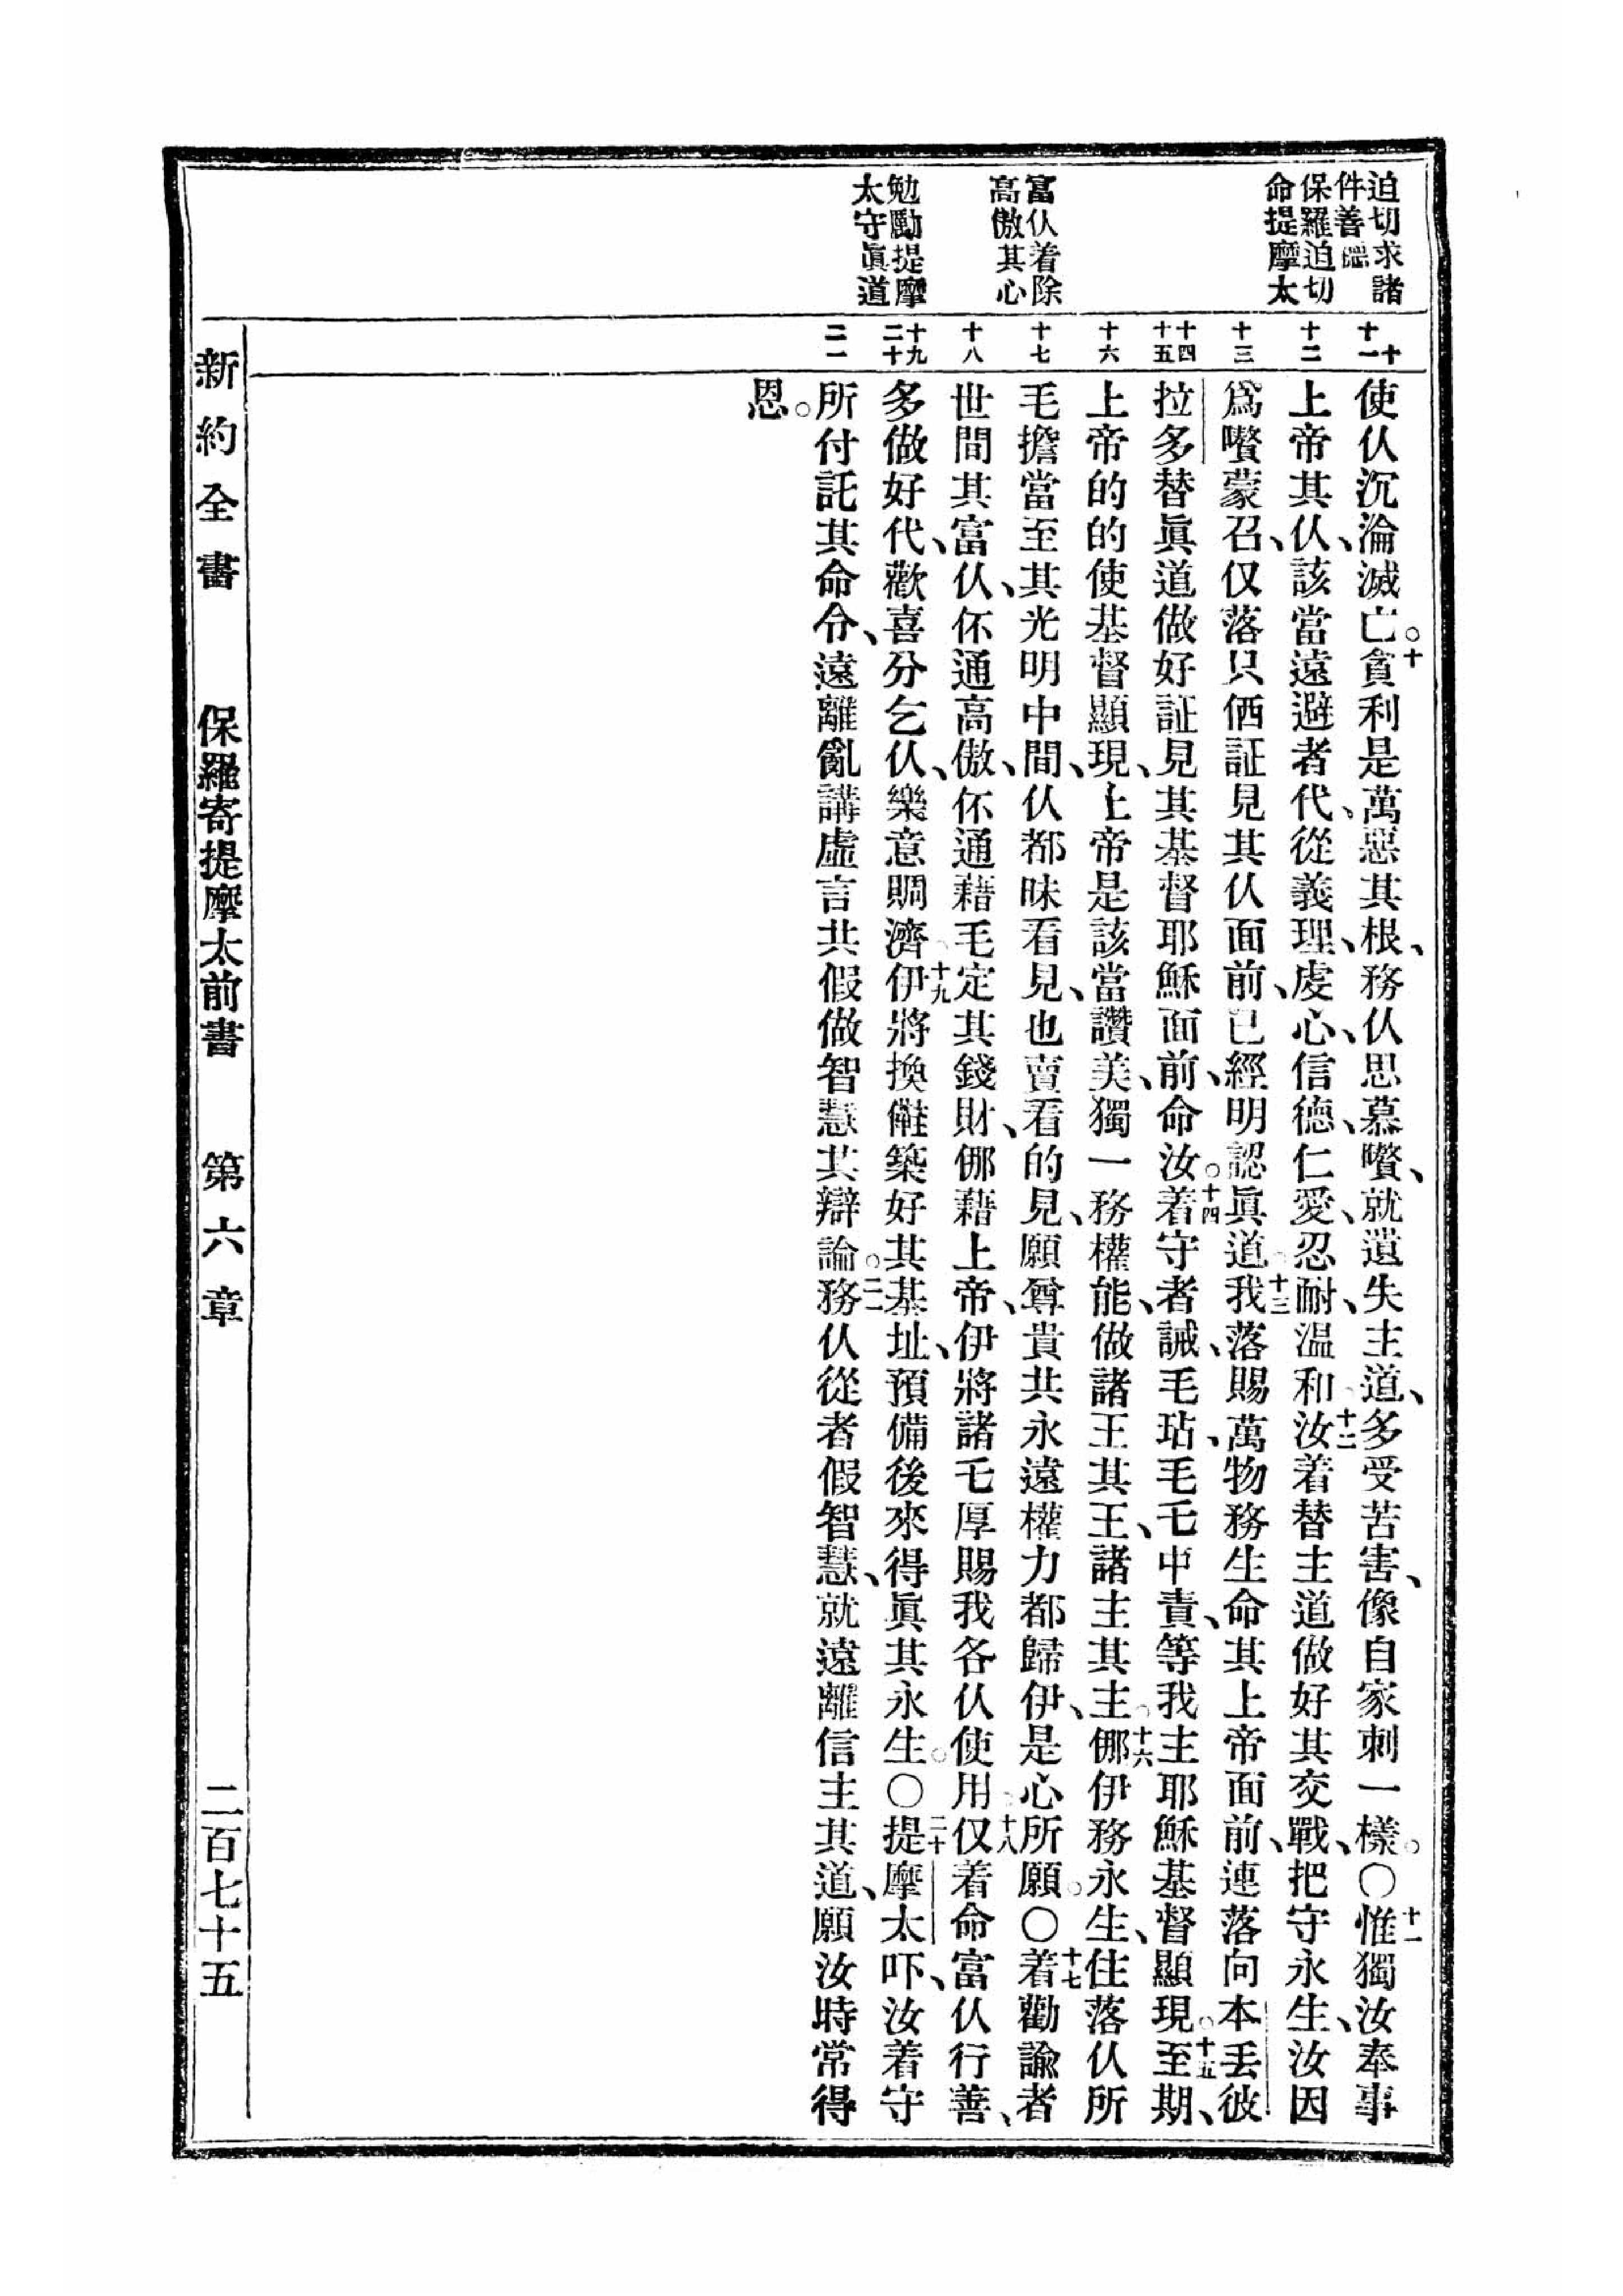 迫切求諸
件善德
保羅迫切
命提摩太
富仈着除
高傲其心
勉勵提摩
太守眞道
十
十一
十二
十三
十四
十五
十六
十七
十八
十九
二十
二一
使仈沉淪滅亡。十貪利是萬惡其根、務仈思慕嚽、就遺失主道、多受苦害、像自家刺一樣。〇十一惟獨汝奉事
上帝其仈、該當遠避者代、從義理、虔心、信德、仁愛、忍耐、温和。十二汝着替主道做好其交戰、把守永生、汝因
爲嚽蒙召、仅落只㑚証見其仈面前、已經明認眞道。十三我落賜萬物務生命其上帝面前、連落向本丢彼
拉多替眞道做好証見其基督耶穌面前、命汝。十四着守者誡、毛玷、毛乇中責、等我主耶穌基督顯現。十五至期、
上帝的的使基督顯現、上帝是該當讚美、獨一務權能、做諸王其王、諸主其主。十六㑚伊務永生、住落仈所
毛擔當至其光明中間、仈都昧看見、也賣看的見、願尊貴共永遠權力都歸伊、是心所願。〇十七着勸諭者
世間其富仈、伓通高傲、伓通藉毛定其錢財、㑚藉上帝、伊將諸乇厚賜我各仈使用。十八仅着命富仈行善、
多做好代、歡喜分乞仈、樂意賙濟。十九伊將換㒻築好其基址、預備後來得眞其永生。〇二十提摩太吓、汝着守
所付託其命令、遠離亂講虛言共假做智慧其辯論。二一務仈從者假智慧、就遠離信主其道、願汝時常得
恩。
新約全書　保羅寄提摩太前書　第六章　二百七十五